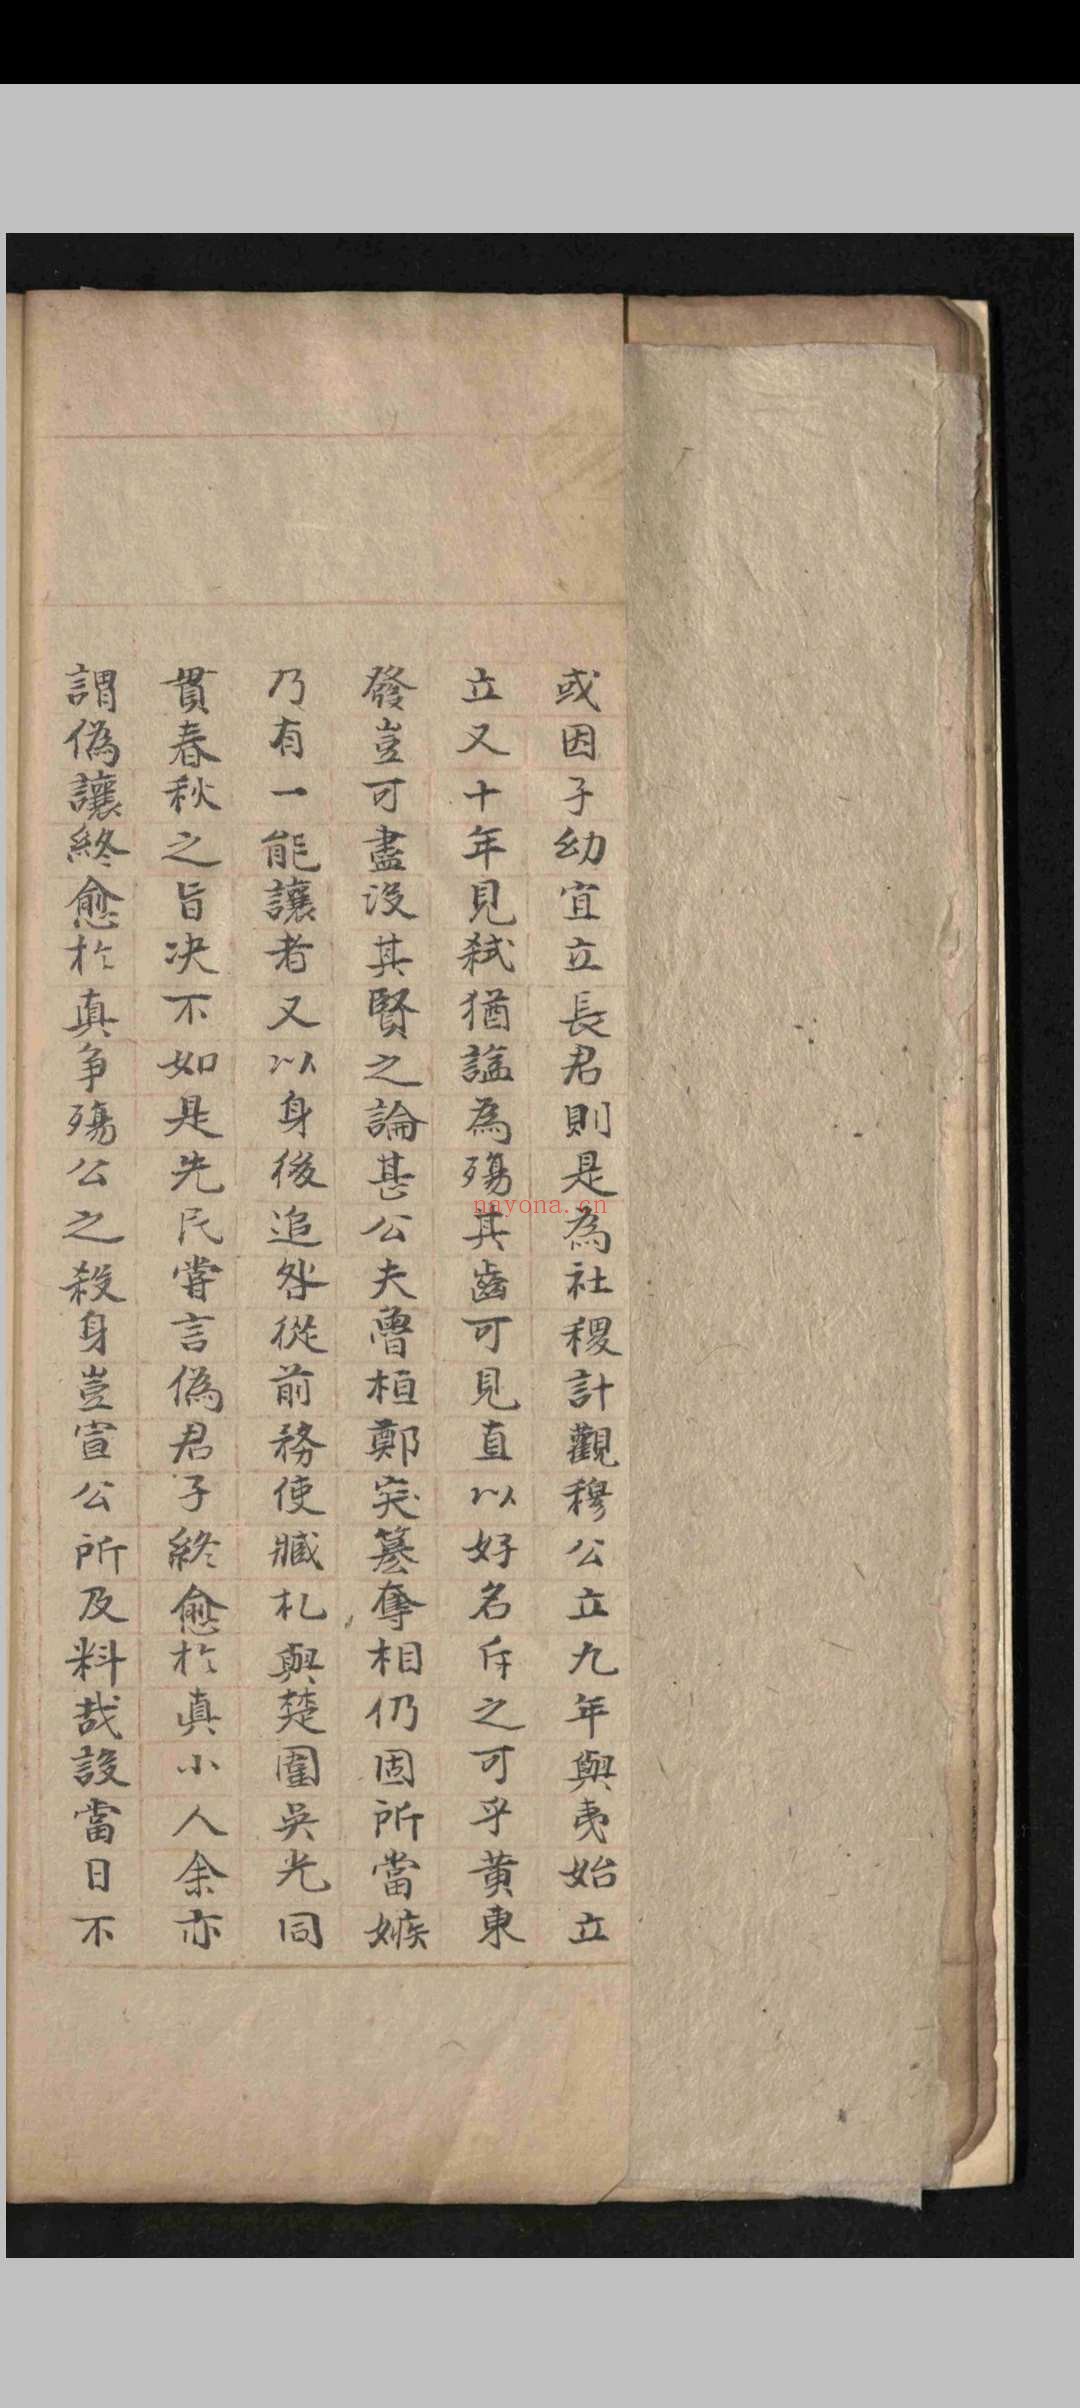 或因子幼宜立長君則是為社稷計觀穆公立九年與夷始立
立又十年見弒猶謚為殤其齒可見直以好名斥之可乎黄東
發豈可盡沒其賢之論甚公夫魯桓鄭突篡奪相仍固所當嫉
乃有一能讓者又以身後追咎從前務使臧札與楚圍吳光同
貫春秋之旨决不如是先民嘗言偽君子終愈於真小人余亦
謂偽讓終愈於真争殤公之殺身豈宣公所及料哉設當日不
nayona.cn